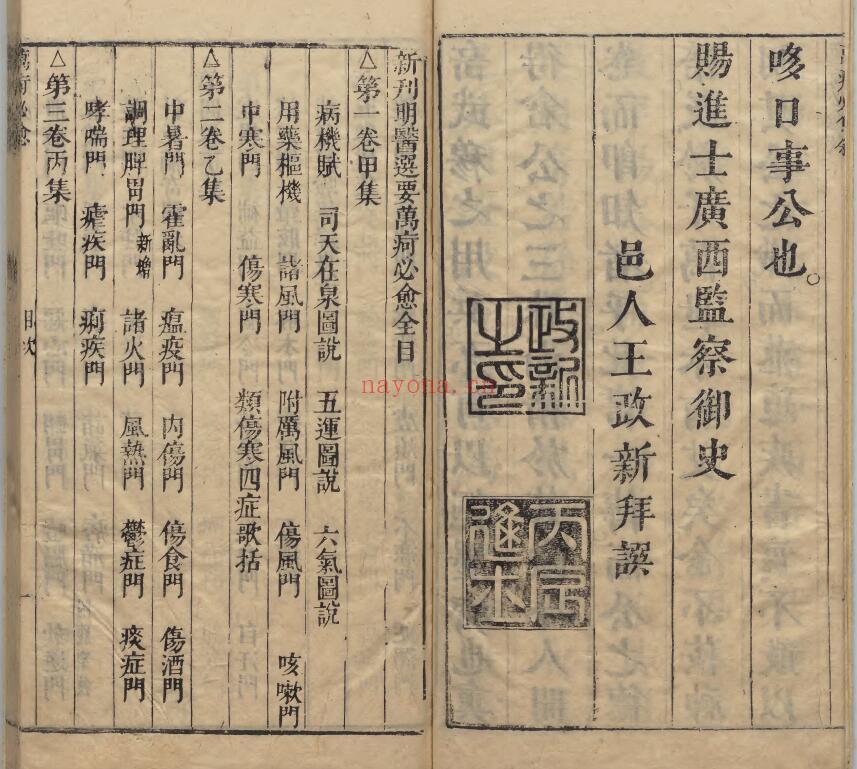 哆口事公也。
賜進士廣西監察御史
邑人王政新拜譔
政新之印
丙辰進士
新刊明醫選要萬疴必愈全目
△第一卷甲集
病機賦 司天在泉圖說 五運圖說 六氣圖說
用藥樞機 諸風門 附厲風門 傷風門 咳嗽門
中寒門 傷寒門 類傷寒四症歌括
△第二卷乙集
中暑門 霍亂門 瘟疫門 内傷門 傷食門 傷酒門
調理脾胃門新增 諸火門 風熱門 鬱症門 痰症門
哮喘門 瘧疾門 痢疾門
△第三卷丙集
萬疴必愈 目次
nayona.cn